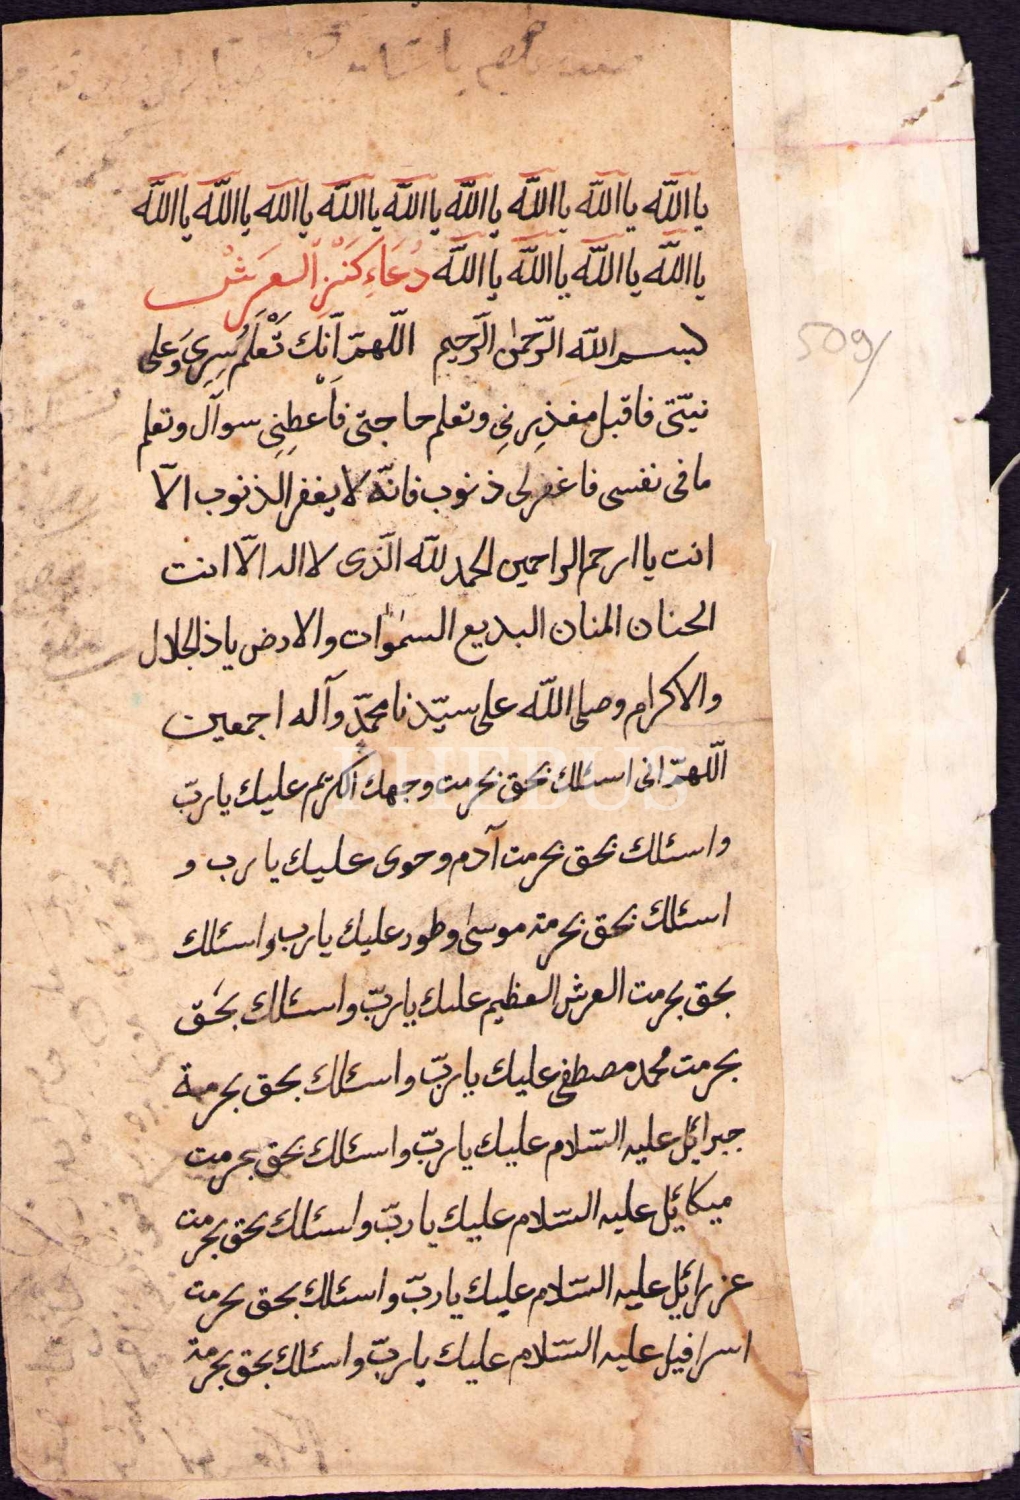 يا الله يا الله يا الله يا الله يا الله يا الله يا الله يا الله يا الله
يا الله يا الله يا الله يا الله دُعَاءِ كَنْزِ اَلعَرَشْ
بسم الله الرّحمٰن الرّحيم اللّهمّ اَنّك تَعْلَمُ سِرِىّ وَعلى
نيّتى فاقبل مغذِرنِى وتعلم حاجتى فَاَعطِنِى سوآل وتعلم
مافى نفسى فاغفرلى ذنوب فانّه لا يغفر الذنوب الاّ
انت يا ارحم الراحمين الحمد لله الّذى لا اله الاّ انت
الحنان المنان البديع السمٰوات والارض ياذالجلال
والاكرام وصلى الله على سيّدنا محمّد وآله اجمعين
اللّهمّ انى اسئلك بحق بحرمت وجهك الكريم عليك ياربّ
واسئلك بحق بحرمت آدم وحوى عليك يارب و
اسئلك بحق بحرمة موسىٰ وطور عليك يارب واسئلك
بحق بحرمت العرش العظيم عليك ياربّ واسئلك بحَق
بحرمت محمد مصطفى عليك ياربّ واسئلك بحق بحرمة
جبرائل عليه السّلام عليك ياربّ واسئلك بحق بحرمت
ميكائيل عليه السّلام عليك ياربّ واسئلك بحق بحرمت
عزرائيل عليه السّلام عليك ياربّ واسئلك بحق بحرمت
اسرافيل عليه السّلام عليك ياربّ واسئلك بحق بحرمة
509/
PHEBUS